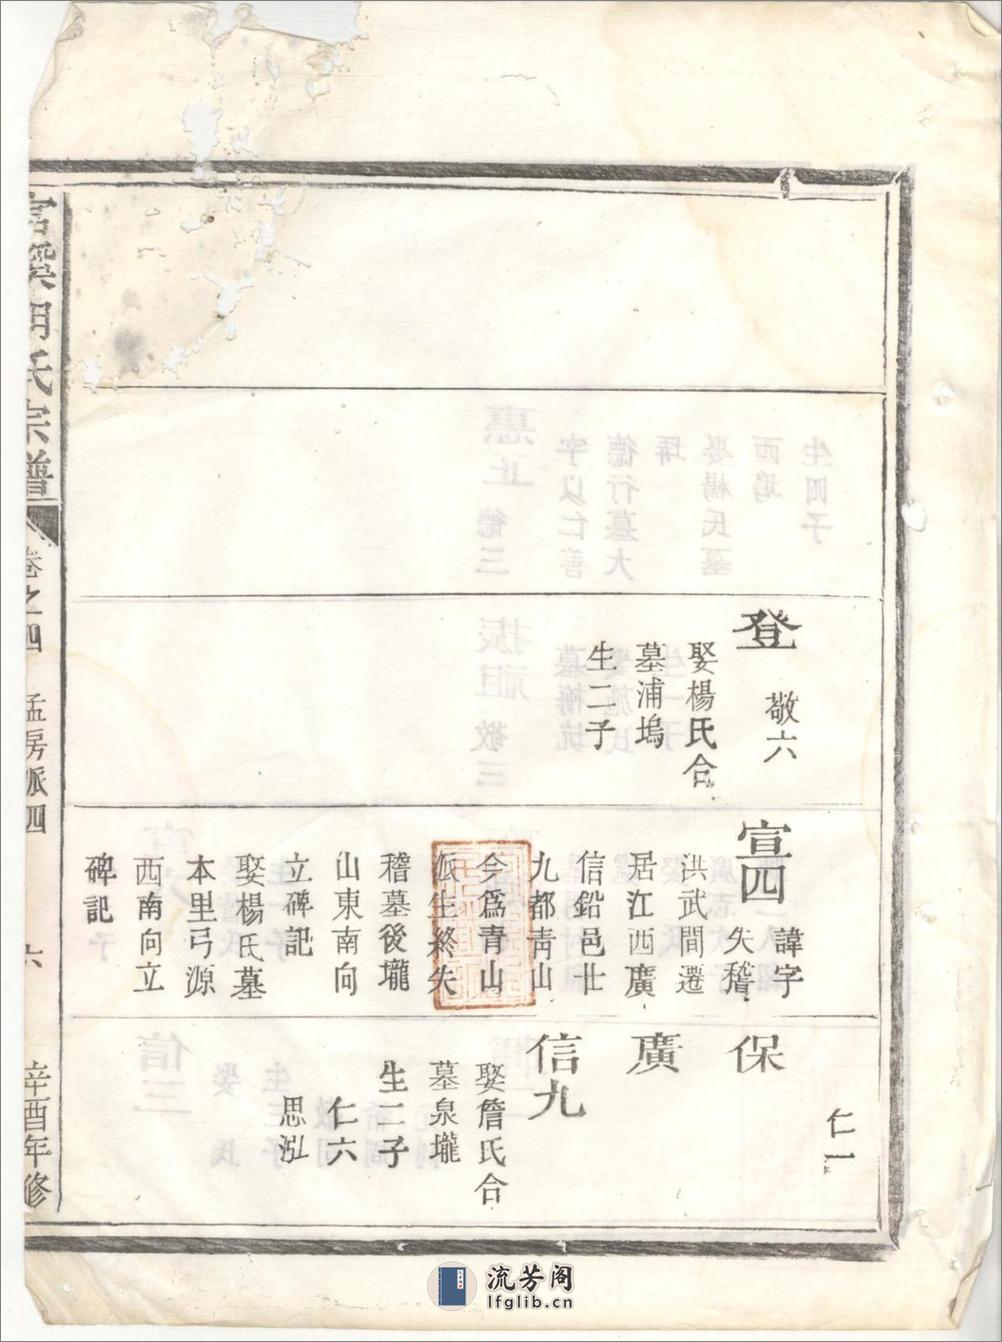 登
敬六
娶楊氏合
墓浦塢
生二子
宣四
諱字
失稽
洪武間遷
居江西廣
信鉛邑廿
九都青山
今爲青山
派生終失
稽墓後壠
山東南向
立碑記
娶楊氏墓
本里弓源
西南向立
碑記
仁一
保
廣
信九
娶詹氏合
墓泉壠
生二子
仁六
思泓
氏宗譜
卷之四
孟房派四
六
辛酉年修
流芳阁
lfglib.cn